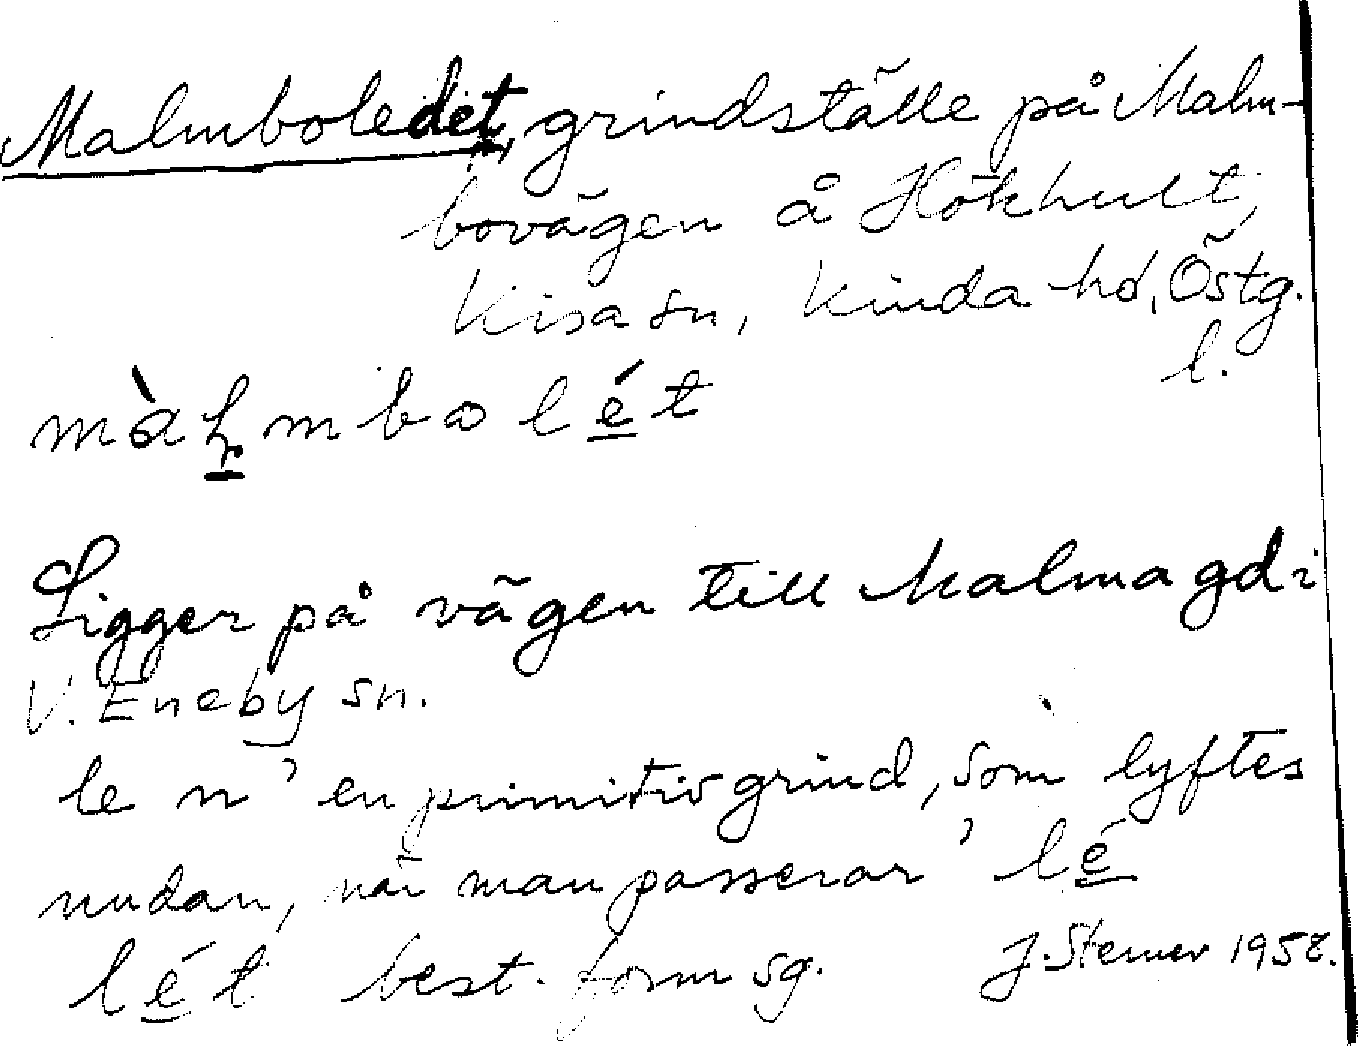 Malmboledet, grindställe på Malm-
bovägen å Hökhult,
Kisa sn, Kinda hd, Östg.
l.
màlmbolét
Ligger på vägen till Malma gd i
V. Eneby sn.
le n ’en primitiv grind, som lyftes
undan, när man passerar’ lé
lét best. form sg. J. Sterner 1958.